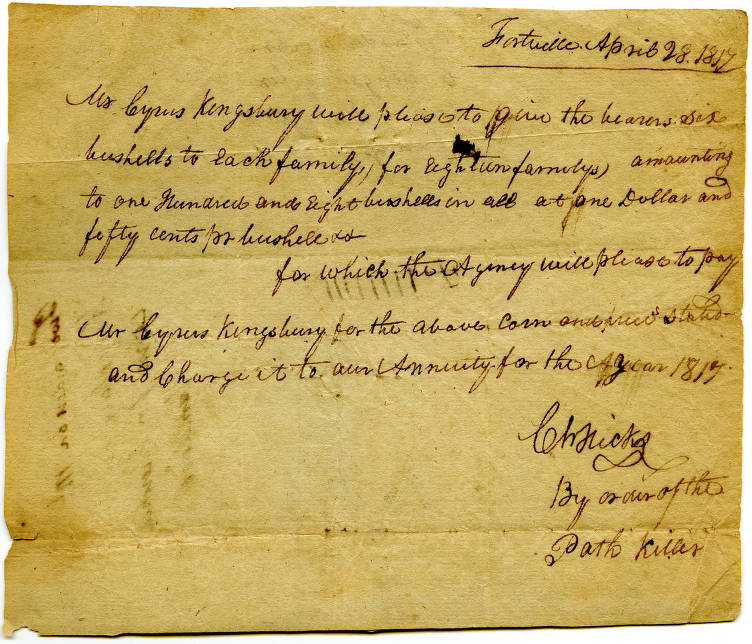 Fortville April 28. 1817
Mr Cyrus Kingsbury will please to give the bearers six
bushells to Each family, for Eighteen familys, amaunting
to one Hundred and Eight bushells in all at one Dollar and
fefty cents pr bushell &
for which the Agency will please to pay
Mr Cyrus Kingsbury for the above Corn and price stated
and Charge it to our Annuity for the year 1817.
Ch Hicks
By order of the
Path Killer